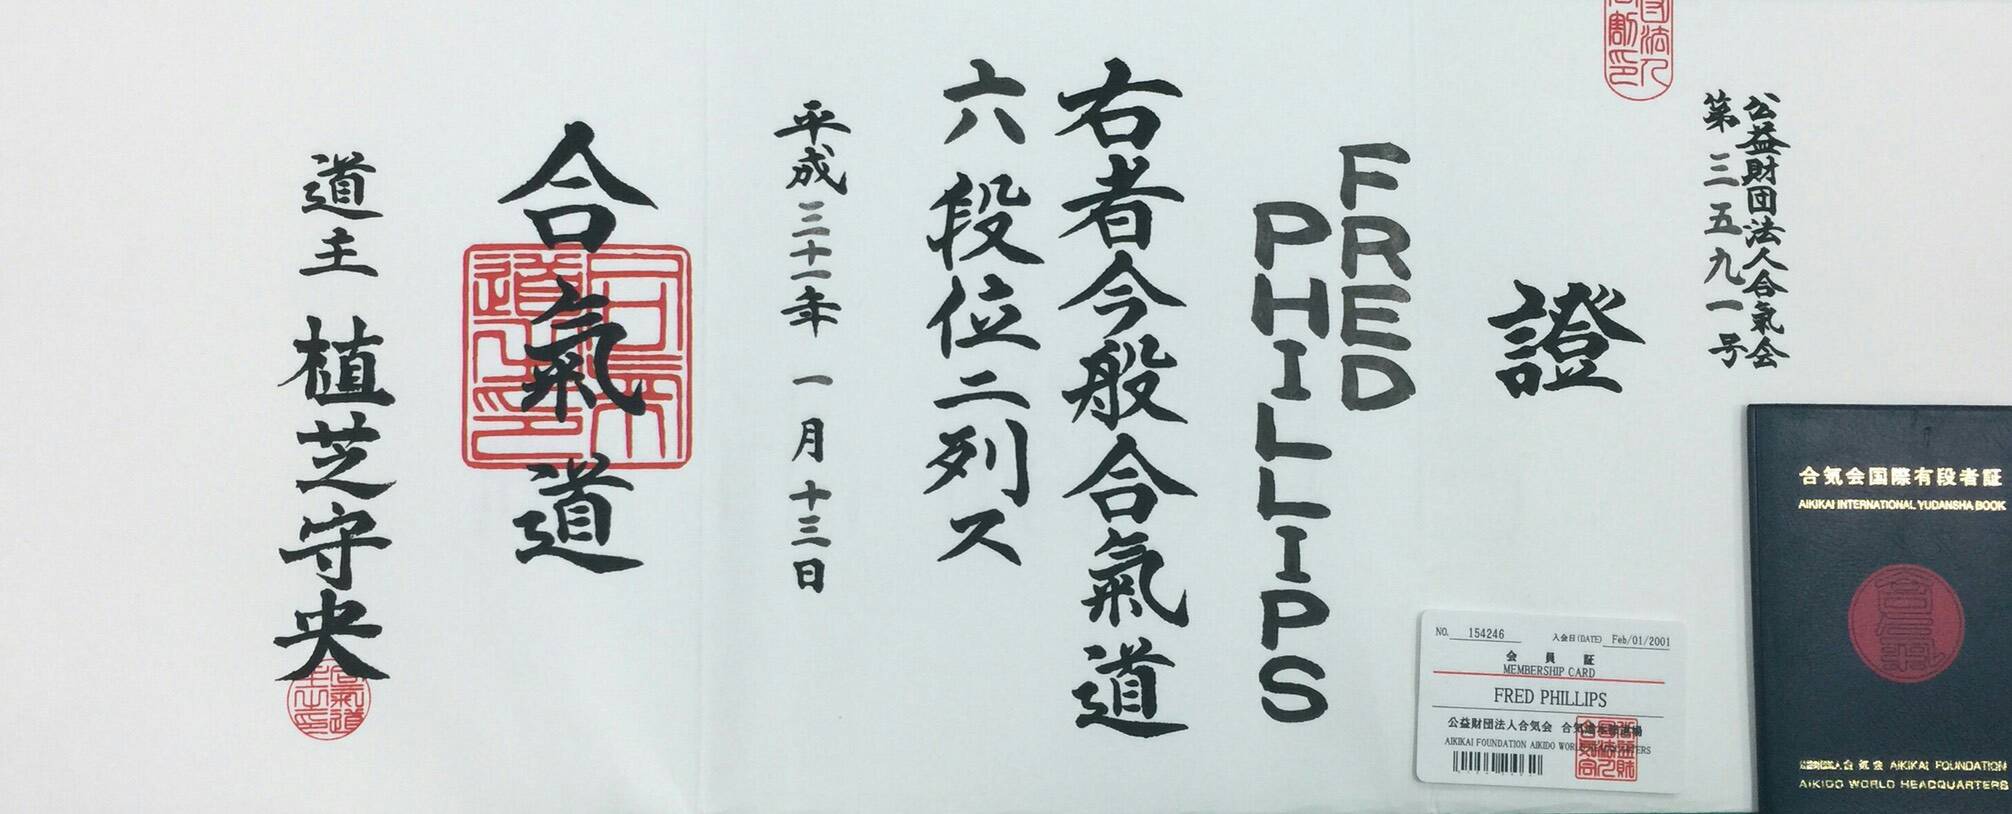 公益財団法人合氣会
第三五九一号
證
FRED
PHILLIPS
右者今般合氣道
六段位ニ列ス
平成三十一年 一月十三日
合氣道
道主 植芝守央
NO. 154246 入会日(DATE) Feb/01/2001
会員証
MEMBERSHIP CARD
FRED PHILLIPS
公益財団法人合気会 合気道本部道場
AIKIKAI FOUNDATION AIKIDO WORLD HEADQUARTERS
合気会国際有段者証
AIKIKAI INTERNATIONAL YUDANSHA BOOK
公益財団法人合気会 AIKIKAI FOUNDATION
AIKIDO WORLD HEADQUARTERS